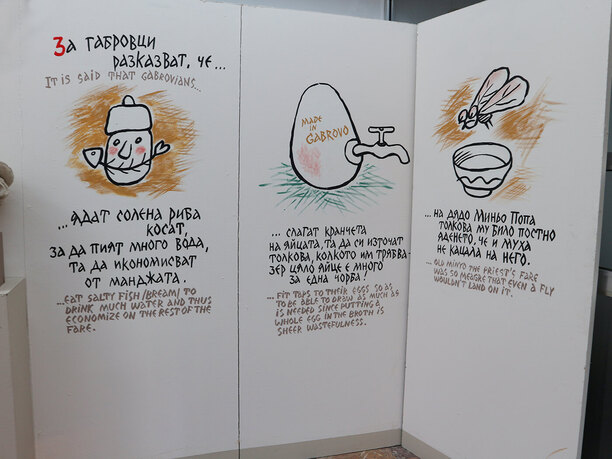 За габровци
разказват, че...
It is said that Gabrovians...
...ядат солена риба
косат,
за да пият много вода,
та да икономисват
от манджата.
...eat salty fish /bream/ to
drink much water and thus
economize on the rest of the
fare.
Made
in
Gabrovo
...слагат кранчета
на яйцата, та да си източат
толкова, колкото им трябва-
зер цяло яйце е много
за една чорба!
...fit taps to their eggs so as
to be able to draw as much as
is needed since putting a
whole egg in the broth is
sheer wastefulness.
...на дядо Миньо Попа
толкова му било постно
яденето, че и муха
не кацала на него.
...old Minyo the priest's fare
was so meagre that even a fly
wouldn't land on it.